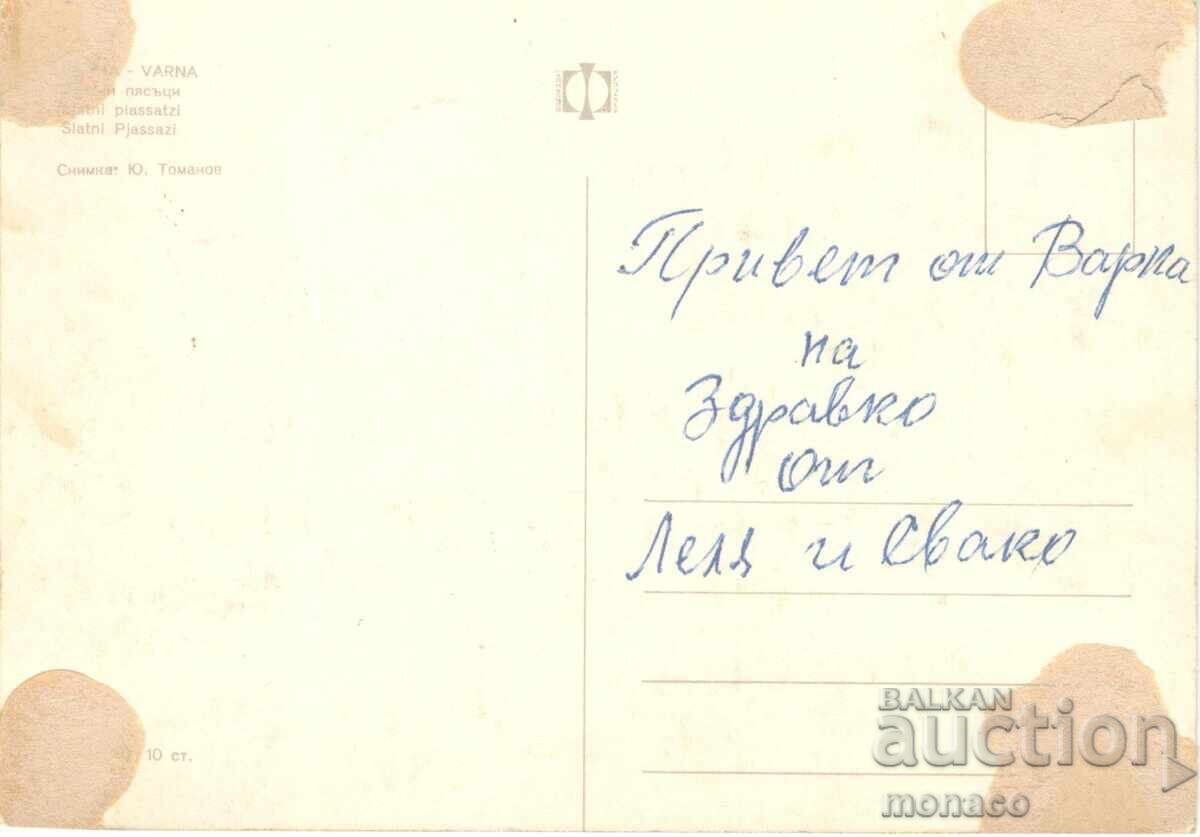 - VARNA
пясъци
piassatzi
Slatni Pjassazi
Снимка: Ю. Томанов
Привет от Варна
на
Здравко
от
Леля и Свако
10 ст.
BALKAN
auction
monaco